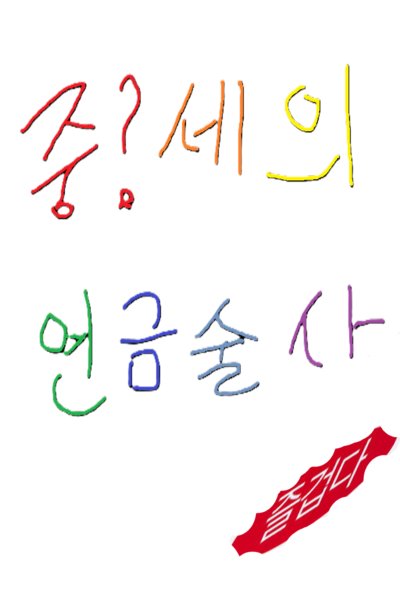 중?세의
연금술사
즐겁다